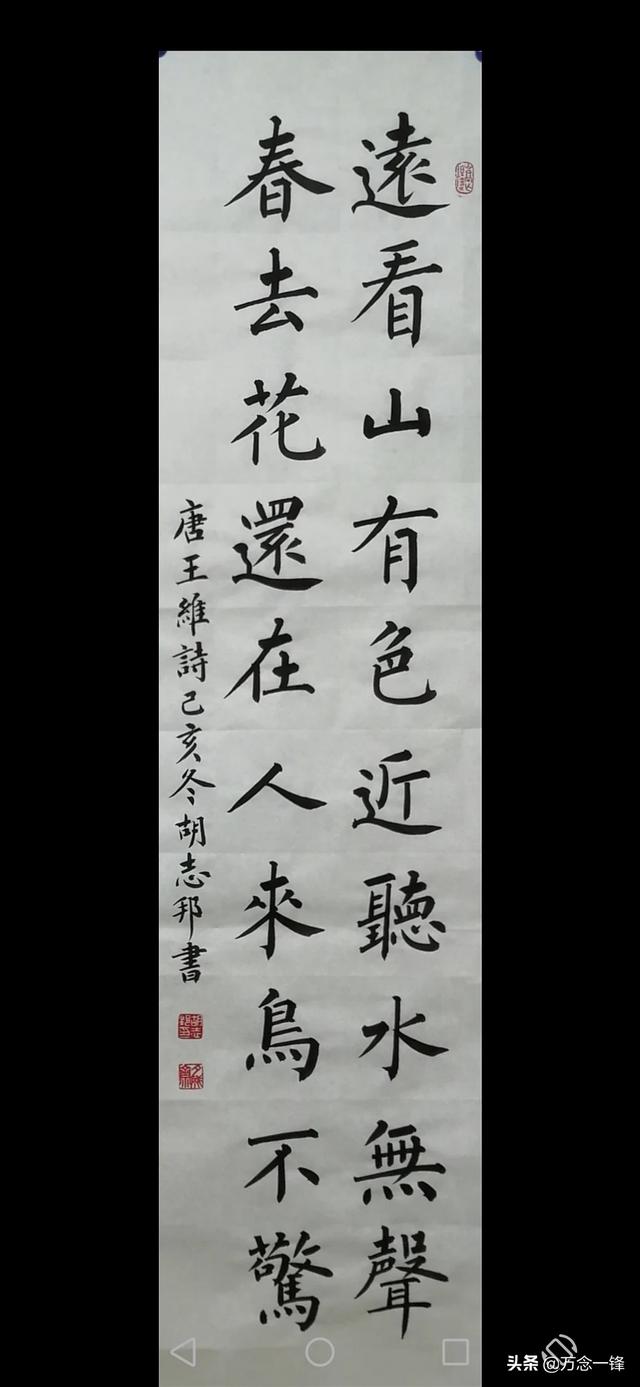 遠看山有色近聽水無聲
春去花還在人來鳥不驚
唐王維詩己亥冬胡志邦書
头条 @万念一锋